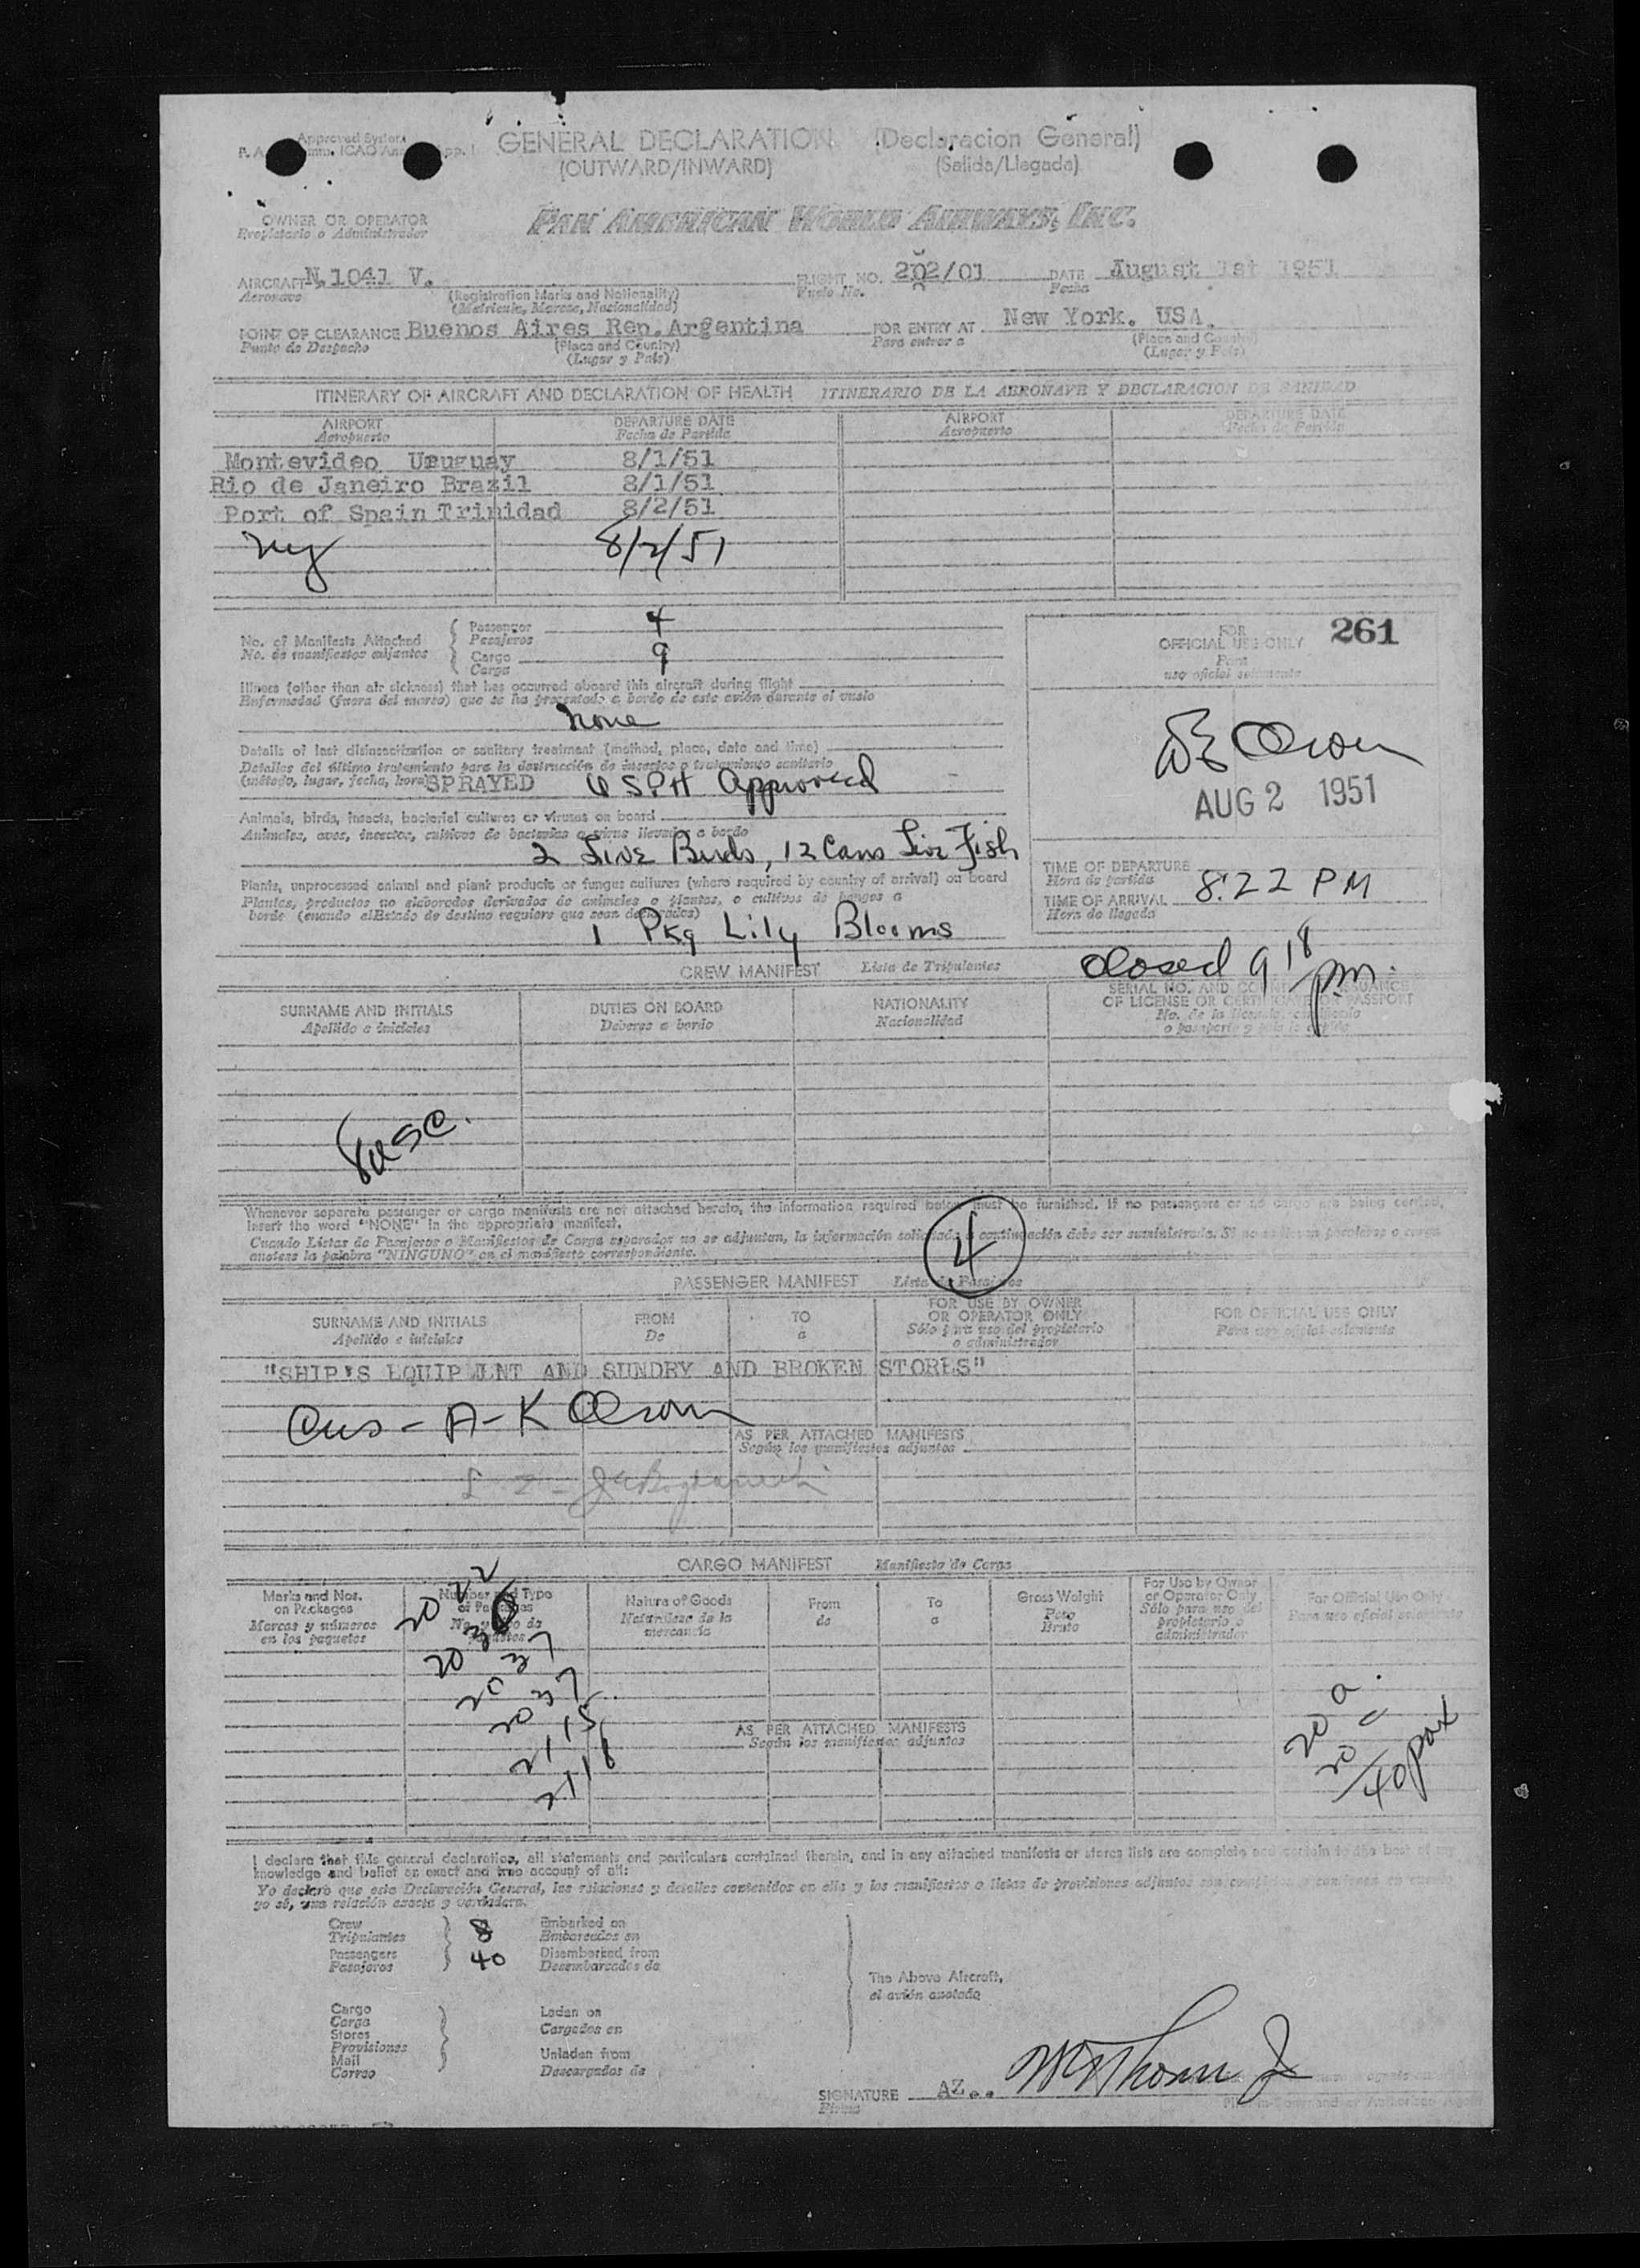 Approved System
GENERAL DECLARATION (Declaracion General)
(OUTWARD/INWARD) (Salida/Llegada)
OWNER OR OPERATOR
Propietario o Administrador
PAN AMERICAN WORLD AIRWAYS, INC.
AIRCRAFT N.1041 V. FLIGHT NO. 202/01 DATE August 1st 1951
Aeronave (Registration Marks and Nationality) Vuelo No. Fecha
(Matricula, Marcas, Nacionalidad)
POINT OF CLEARANCE Buenos Aires Rep.Argentina FOR ENTRY AT New York. USA.
Punto de Despacho (Place and Country) Para entrar a (Place and Country)
(Lugar y País) (Lugar y País)
ITINERARY OF AIRCRAFT AND DECLARATION OF HEALTH ITINERARIO DE LA AERONAVE Y DECLARACION DE SANIDAD
AIRPORT DEPARTURE DATE AIRPORT DEPARTURE DATE
Aeropuerto Fecha de Partida Aeropuerto Fecha de Partida
Montevideo Uruguay 8/1/51
Rio de Janeiro Brazil 8/1/51
Port of Spain Trinidad 8/2/51
NY 8/2/51
No. of Manifests Attached
No. de manifiestos adjuntos
Passenger 4
Pasajeros
Cargo 9
Carga
FOR
OFFICIAL USE ONLY 261
Para
uso oficial solamente
Illness (other than air sickness) that has occurred aboard this aircraft during flight
Enfermedad (fuera del mareo) que se ha presentado a bordo de este avión durante el vuelo
None
Details of last disinsectization or sanitary treatment (method, place, date and time)
Detalles del último tratamiento para la destrucción de insectos o tratamiento sanitario
(método, lugar, fecha, hora) SPRAYED USPH Approved
AUG 2 1951
Animals, birds, insects, bacterial cultures or viruses on board
Animales, aves, insectos, cultivos de bacterias o virus llevados a bordo
2 Live Birds, 12 Cans Live Fish
Plants, unprocessed animal and plant products or fungus cultures (where required by country of arrival) on board
Plantas, productos no elaborados derivados de animales o plantas, o cultivos de hongos a
bordo (cuando el Estado de destino requiere que sean declarados)
1 Pkg Lily Blooms
TIME OF DEPARTURE
Hora de partida
TIME OF ARRIVAL 8:22 PM
Hora de llegada
Closed 9 18 pm.
CREW MANIFEST Lista de Tripulantes
SURNAME AND INITIALS DUTIES ON BOARD NATIONALITY SERIAL NO. AND COUNTRY OF ISSUANCE
Apellido e iniciales Deberes a bordo Nacionalidad OF LICENSE OR CERTIFICATE OR PASSPORT
8 USC.
Whenever separate passenger or cargo manifests are not attached hereto, the information required below must be furnished. If no passengers or no cargo are being carried,
insert the word "NONE" in the appropriate manifest.
Cuando Listas de Pasajeros o Manifiestos de Carga separados no se adjuntan, la información solicitada a continuación debe ser suministrada.
anótese la palabra "NINGUNO" en el manifiesto correspondiente.
4
PASSENGER MANIFEST Lista de Pasajeros
SURNAME AND INITIALS FROM TO FOR USE BY OWNER FOR OFFICIAL USE ONLY
Apellido e iniciales De a OR OPERATOR ONLY Para uso oficial solamente
Sólo para uso del propietario
o administrador
"SHIP'S EQUIPMENT AND SUNDRY AND BROKEN STORES"
Cus - A-K
AS PER ATTACHED MANIFESTS
Según los manifiestos adjuntos
L Z -
CARGO MANIFEST Manifiesto de Carga
Marks and Nos. Number and Type Nature of Goods From To Gross Weight For Use by Owner For Official Use Only
on Packages of Packages Naturaleza de la de a Peso or Operator Only Para uso oficial solamente
Marcas y números mercancía Bruto Sólo para uso del
en los paquetes propietario o
administrador
20 22
20 30
20 37
20 37
21 15
21 18
AS PER ATTACHED MANIFESTS
Según los manifiestos adjuntos
20 a.
20 c
40 pax
I declare that this general declaration, all statements and particulars contained therein, and in any attached manifests or stores lists are complete and certain to the best of my
knowledge and belief an exact and true account of all:
Yo declaro que esta Declaración General, las relaciones y detalles contenidos en ella y los manifiestos o listas de provisiones adjuntos son
yo sé, una relación exacta y verdadera.
Crew 8 Embarked on
Tripulantes Embarcados en
Passengers 40 Disembarked from
Pasajeros Desembarcados de
The Above Aircraft,
el avión anotado
Cargo Laden on
Carga Cargados en
Stores
Provisiones Unladen from
Mail Descargados de
Correo
SIGNATURE AZ..
Firma